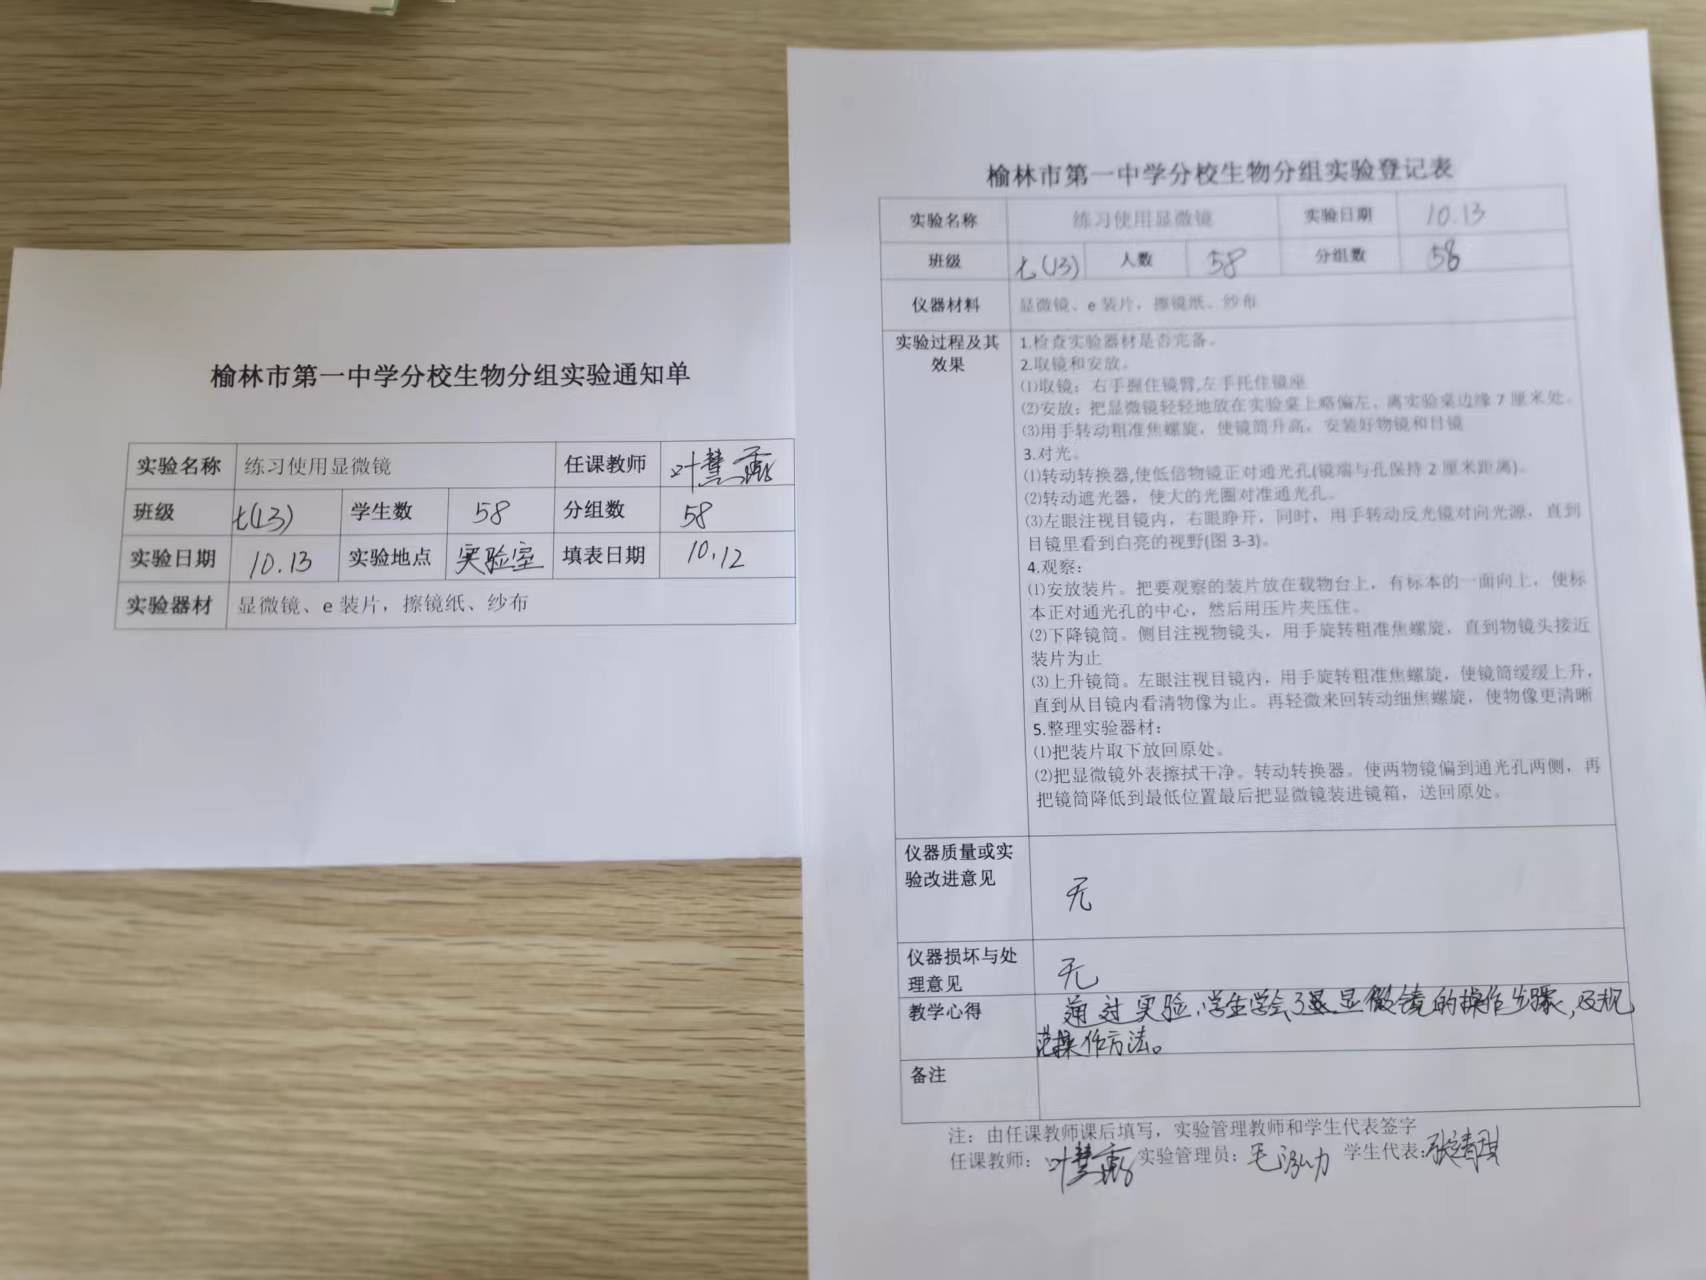 榆林市第一中学分校生物分组实验通知单
实验名称 练习使用显微镜 任课教师 叶慧露
班级 七(13) 学生数 58 分组数 58
实验日期 10.13 实验地点 实验室 填表日期 10.12
实验器材 显微镜、e 装片，擦镜纸、纱布
榆林市第一中学分校生物分组实验登记表
实验名称 练习使用显微镜 实验日期 10.13
班级 七(13) 人数 58 分组数 58
仪器材料 显微镜、e 装片，擦镜纸、纱布
实验过程及其
效果
1.检查实验器材是否完备。
2.取镜和安放。
⑴取镜：右手握住镜臂,左手托住镜座
⑵安放：把显微镜轻轻地放在实验桌上略偏左、离实验桌边缘 7 厘米处。
⑶用手转动粗准焦螺旋，使镜筒升高，安装好物镜和目镜
3.对光。
⑴转动转换器,使低倍物镜正对通光孔(镜端与孔保持 2 厘米距离)。
⑵转动遮光器，使大的光圈对准通光孔。
⑶左眼注视目镜内，右眼睁开，同时，用手转动反光镜对向光源，直到
目镜里看到白亮的视野(图 3-3)。
4.观察：
⑴安放装片。把要观察的装片放在载物台上，有标本的一面向上，使标
本正对通光孔的中心，然后用压片夹压住。
⑵下降镜筒。侧目注视物镜头，用手旋转粗准焦螺旋，直到物镜头接近
装片为止
⑶上升镜筒。左眼注视目镜内，用手旋转粗准焦螺旋，使镜筒缓缓上升，
直到从目镜内看清物像为止。再轻微来回转动细焦螺旋，使物像更清晰
5.整理实验器材：
⑴把装片取下放回原处。
⑵把显微镜外表擦拭干净。转动转换器。使两物镜偏到通光孔两侧，再
把镜筒降低到最低位置最后把显微镜装进镜箱，送回原处。
仪器质量或实
验改进意见
无
仪器损坏与处
理意见
无
教学心得 通过实验，学生学会了显微镜的操作步骤，及规
范操作方法。
备注
注：由任课教师课后填写，实验管理教师和学生代表签字
任课教师：叶慧露 实验管理员：毛泓力 学生代表：张靖琪